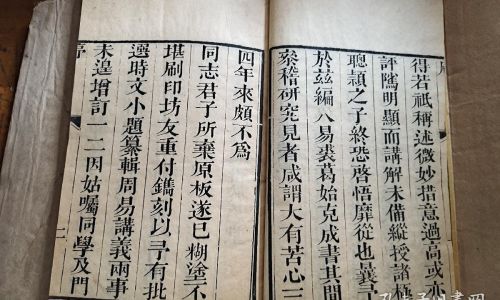 得若祇稱述微妙措意過高或亦
評隲明顯而講解未備縱授諸極
聰頴之子終恐啓悟靡從也曩予
於茲編八易裘葛始克成書其間
叅稽研究見者咸謂大有苦心三
四年來頗不爲
同志君子所棄原板遂已糊塗不
堪刷印坊友重付鐫刻以予有批
選時文小題纂輯周易講義兩事
未遑增訂一二因姑囑同學及門
序
二